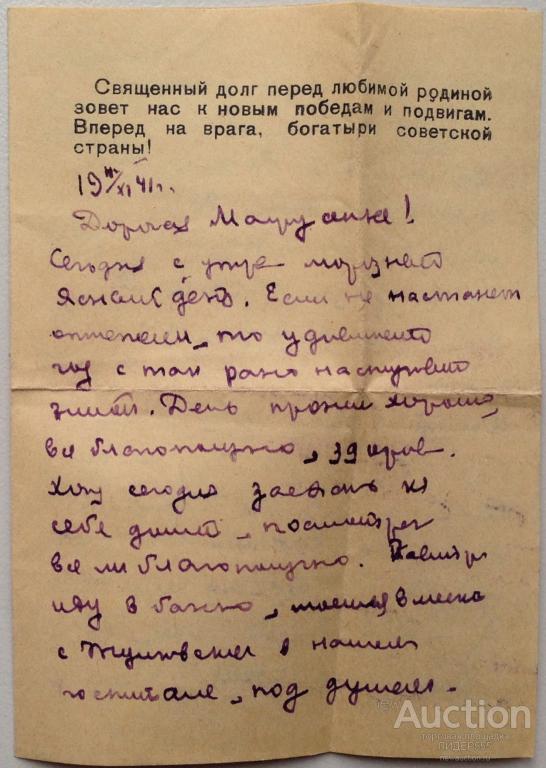 Священный долг перед любимой родиной
зовет нас к новым победам и подвигам.
Вперед на врага, богатыри советской
страны!
19 XI 41 г.
Дорогая !
Сегодня с утра морозный
ясный день. Если не настанет
оттепели, то удивительно
год с так рано наступившей
зимой. День прошел хорошо,
все благополучно,
Хочу сегодня заехать к
себе домой, посмотреть
все ли благополучно.
иду в баню, моемся вместе
с в нашем
госпитале, под душем.
Auction
торговая площадка
ЛИДЕР555
newauction.ru